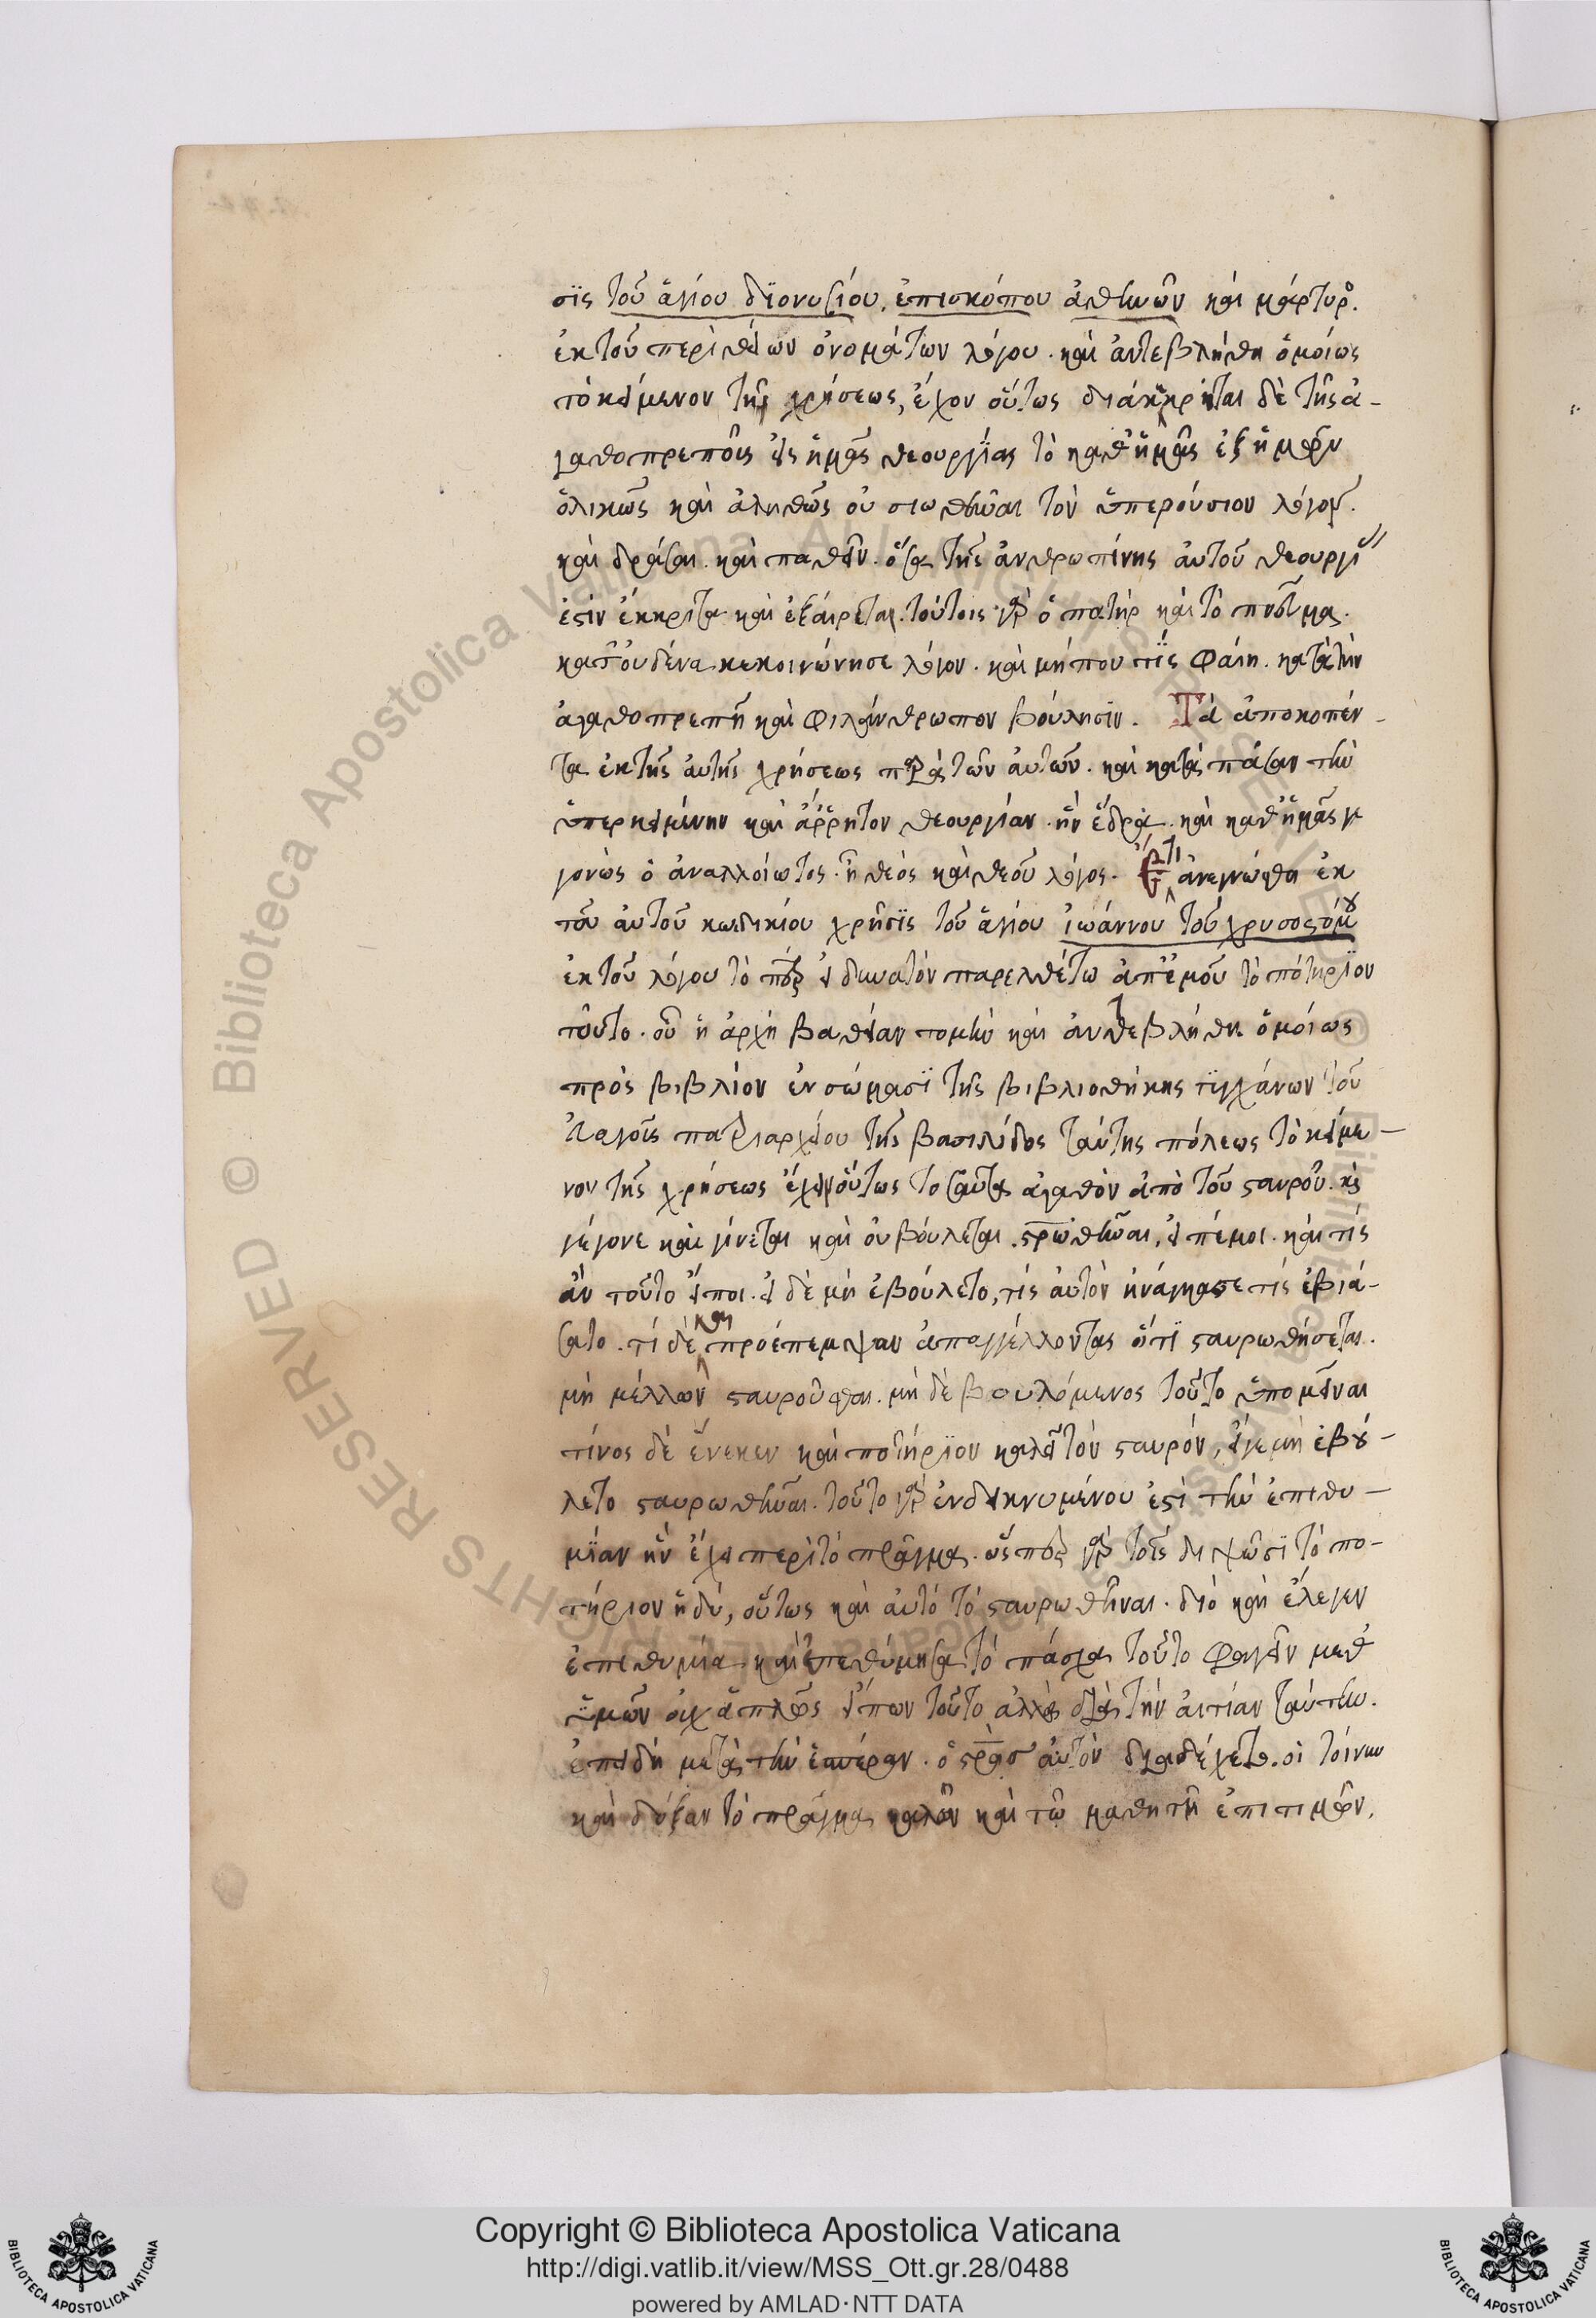 σϊς τοῦ ἁγίου διονυσίου. ἐπισκόπου ἀθηνῶν καὶ μάρτυρος.
ἐκ τοῦ περὶ θείων ὀνομάτων λόγου. καὶ ἀντεβλήθη ὁμοίως
τὸ κείμενον τῆς χρήσεως, ἔχον οὕτως διακέκριται δὲ τῆς ἀ-
γαθοπρεποῦς εἰς ἡμᾶς θεουργίας τὸ καθ' ἡμᾶς ἐξ ἡμῶν
ὁλικῶς καὶ ἀληθῶς οὐσιωθῆναι τὸν ὑπερούσιον λόγον.
καὶ δράσαι. καὶ παθεῖν. ὅσα τῆς ἀνθρωπίνης αὐτοῦ θεουργί
ἐστὶν ἔκκριτα καὶ ἐξαίρεται. τούτοις γὰρ ὁ πατὴρ καὶ τὸ πνεῦμα.
κατ' οὐδένα κεκοινώνησε λόγον. καὶ μήπου τίς φαίη. κατὰ τὴν
ἀγαθοπρεπῆ καὶ φιλάνθρωπον βούλησιν. Τὰ ἀποκοπέν-
τα ἐκ τῆς αὐτῆς χρήσεως παρὰ τῶν αὐτῶν. καὶ κατὰ πᾶσαν τὴν
ὑπερκειμένην καὶ ἄρρητον θεουργίαν. ἣν ἔδρα. καὶ καθ' ἡμᾶς γε
γονὼς ὁ ἀναλλοίωτος. ἡ θεὸς καὶ θεοῦ λόγος. ἔτι ἀνεγνώσθη ἐκ
τοῦ αὐτοῦ κωδικίου χρῆσϊς τοῦ ἁγίου ἰωάννου τοῦ χρυσοστόμου
ἐκ τοῦ λόγου τὸ πάτερ εἰ δυνατὸν παρελθέτω ἀπ' ἐμοῦ τὸ ποτήριον
τοῦτο. οὗ ἡ ἀρχὴ βαθεῖαν τομὴν καὶ ἀντεβλήθη ὁμοίως
πρὸς βιβλίον ἐν σώμασϊ τῆς βιβλιοθήκης τϋγχάνων τοῦ
εὐαγοῦς πατριαρχείου τῆς βασιλίδος ταύτης πόλεως τὸ κείμε-
νον τῆς χρήσεως ἔχειν οὕτως τοσαῦτα ἀγαθὸν ἀπὸ τοῦ σταυροῦ. καὶ
γέγονε καὶ γίνεται καὶ οὐ βούλεται. σταυρωθῆναι, εἰπέ μοι. καὶ τίς
ἂν τοῦτο εἴποι. εἰ δὲ μὴ ἐβούλετο, τίς αὐτὸν ἠνάγκασε τίς ἐβιά-
σατο. τί δὲ καὶ προέπεμψαν ἀπαγγέλλοντας ὅτϊ σταυρωθήσεται.
μὴ μέλλων σταυροῦσθαι. μὴ δὲ βουλόμενος τοῦτο ὑπομεῖναι
τίνος δὲ ἕνεκεν καὶ ποτήριον καλεῖ τὸν σταυρόν, εἴγε μὴ ἐβού-
λετο σταυρωθῆναι. τοῦτο γὰρ ἐνδεικνυμένου ἐστὶ τὴν ἐπιθυ-
μίαν ἣν ἔχει περὶ τὸ πρᾶγμα. ὥσπερ γὰρ τοῖς διψῶσϊ τὸ πο-
τήριον ἡδύ, οὕτως καὶ αὐτό τὸ σταυρωθῆναι. διὸ καὶ ἔλεγεν
ἐπιθυμία καὶ ἐπεθύμησα τὸ πάσχα τοῦτο φαγεῖν μεθ'
ὑμῶν οὐχ ἁπλῶς εἴπων τοῦτο ἀλλὰ διὰ τὴν αἰτίαν ταύτην.
ἐπειδὴ μετὰ τὴν ἑσπέραν. ὁ σταυρὸς αὐτὸν διαδέχεται. οἱ τοίνυν
καὶ δόξαν τὸ πρᾶγμα καλῶν καὶ τῶ μαθητῆ ἐπιτιμῶν.
Copyright © Biblioteca Apostolica Vaticana
http://digi.vatlib.it/view/MSS_Ott.gr.28/0488
powered by AMLAD·NTT DATA